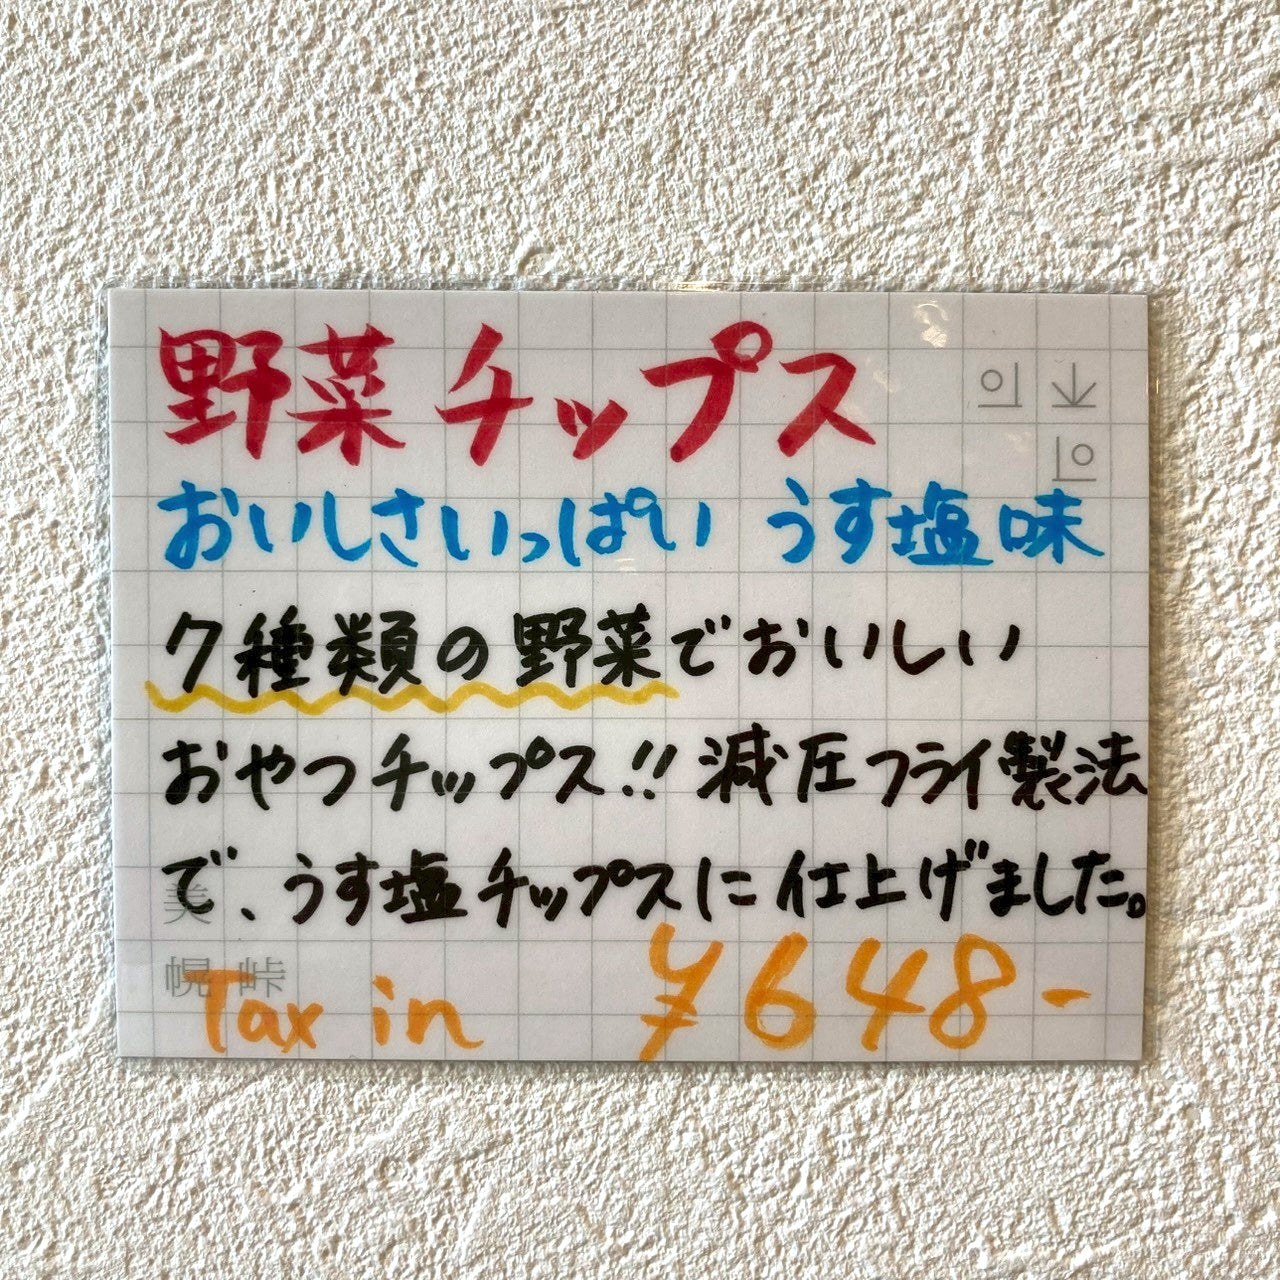 野菜チップス
おいしさいっぱい うす塩味
7種類の野菜でおいしい
おやつチップス!! 減圧フライ製法
で、うす塩チップスに仕上げました。
美
幌 峠
Tax in ¥648-